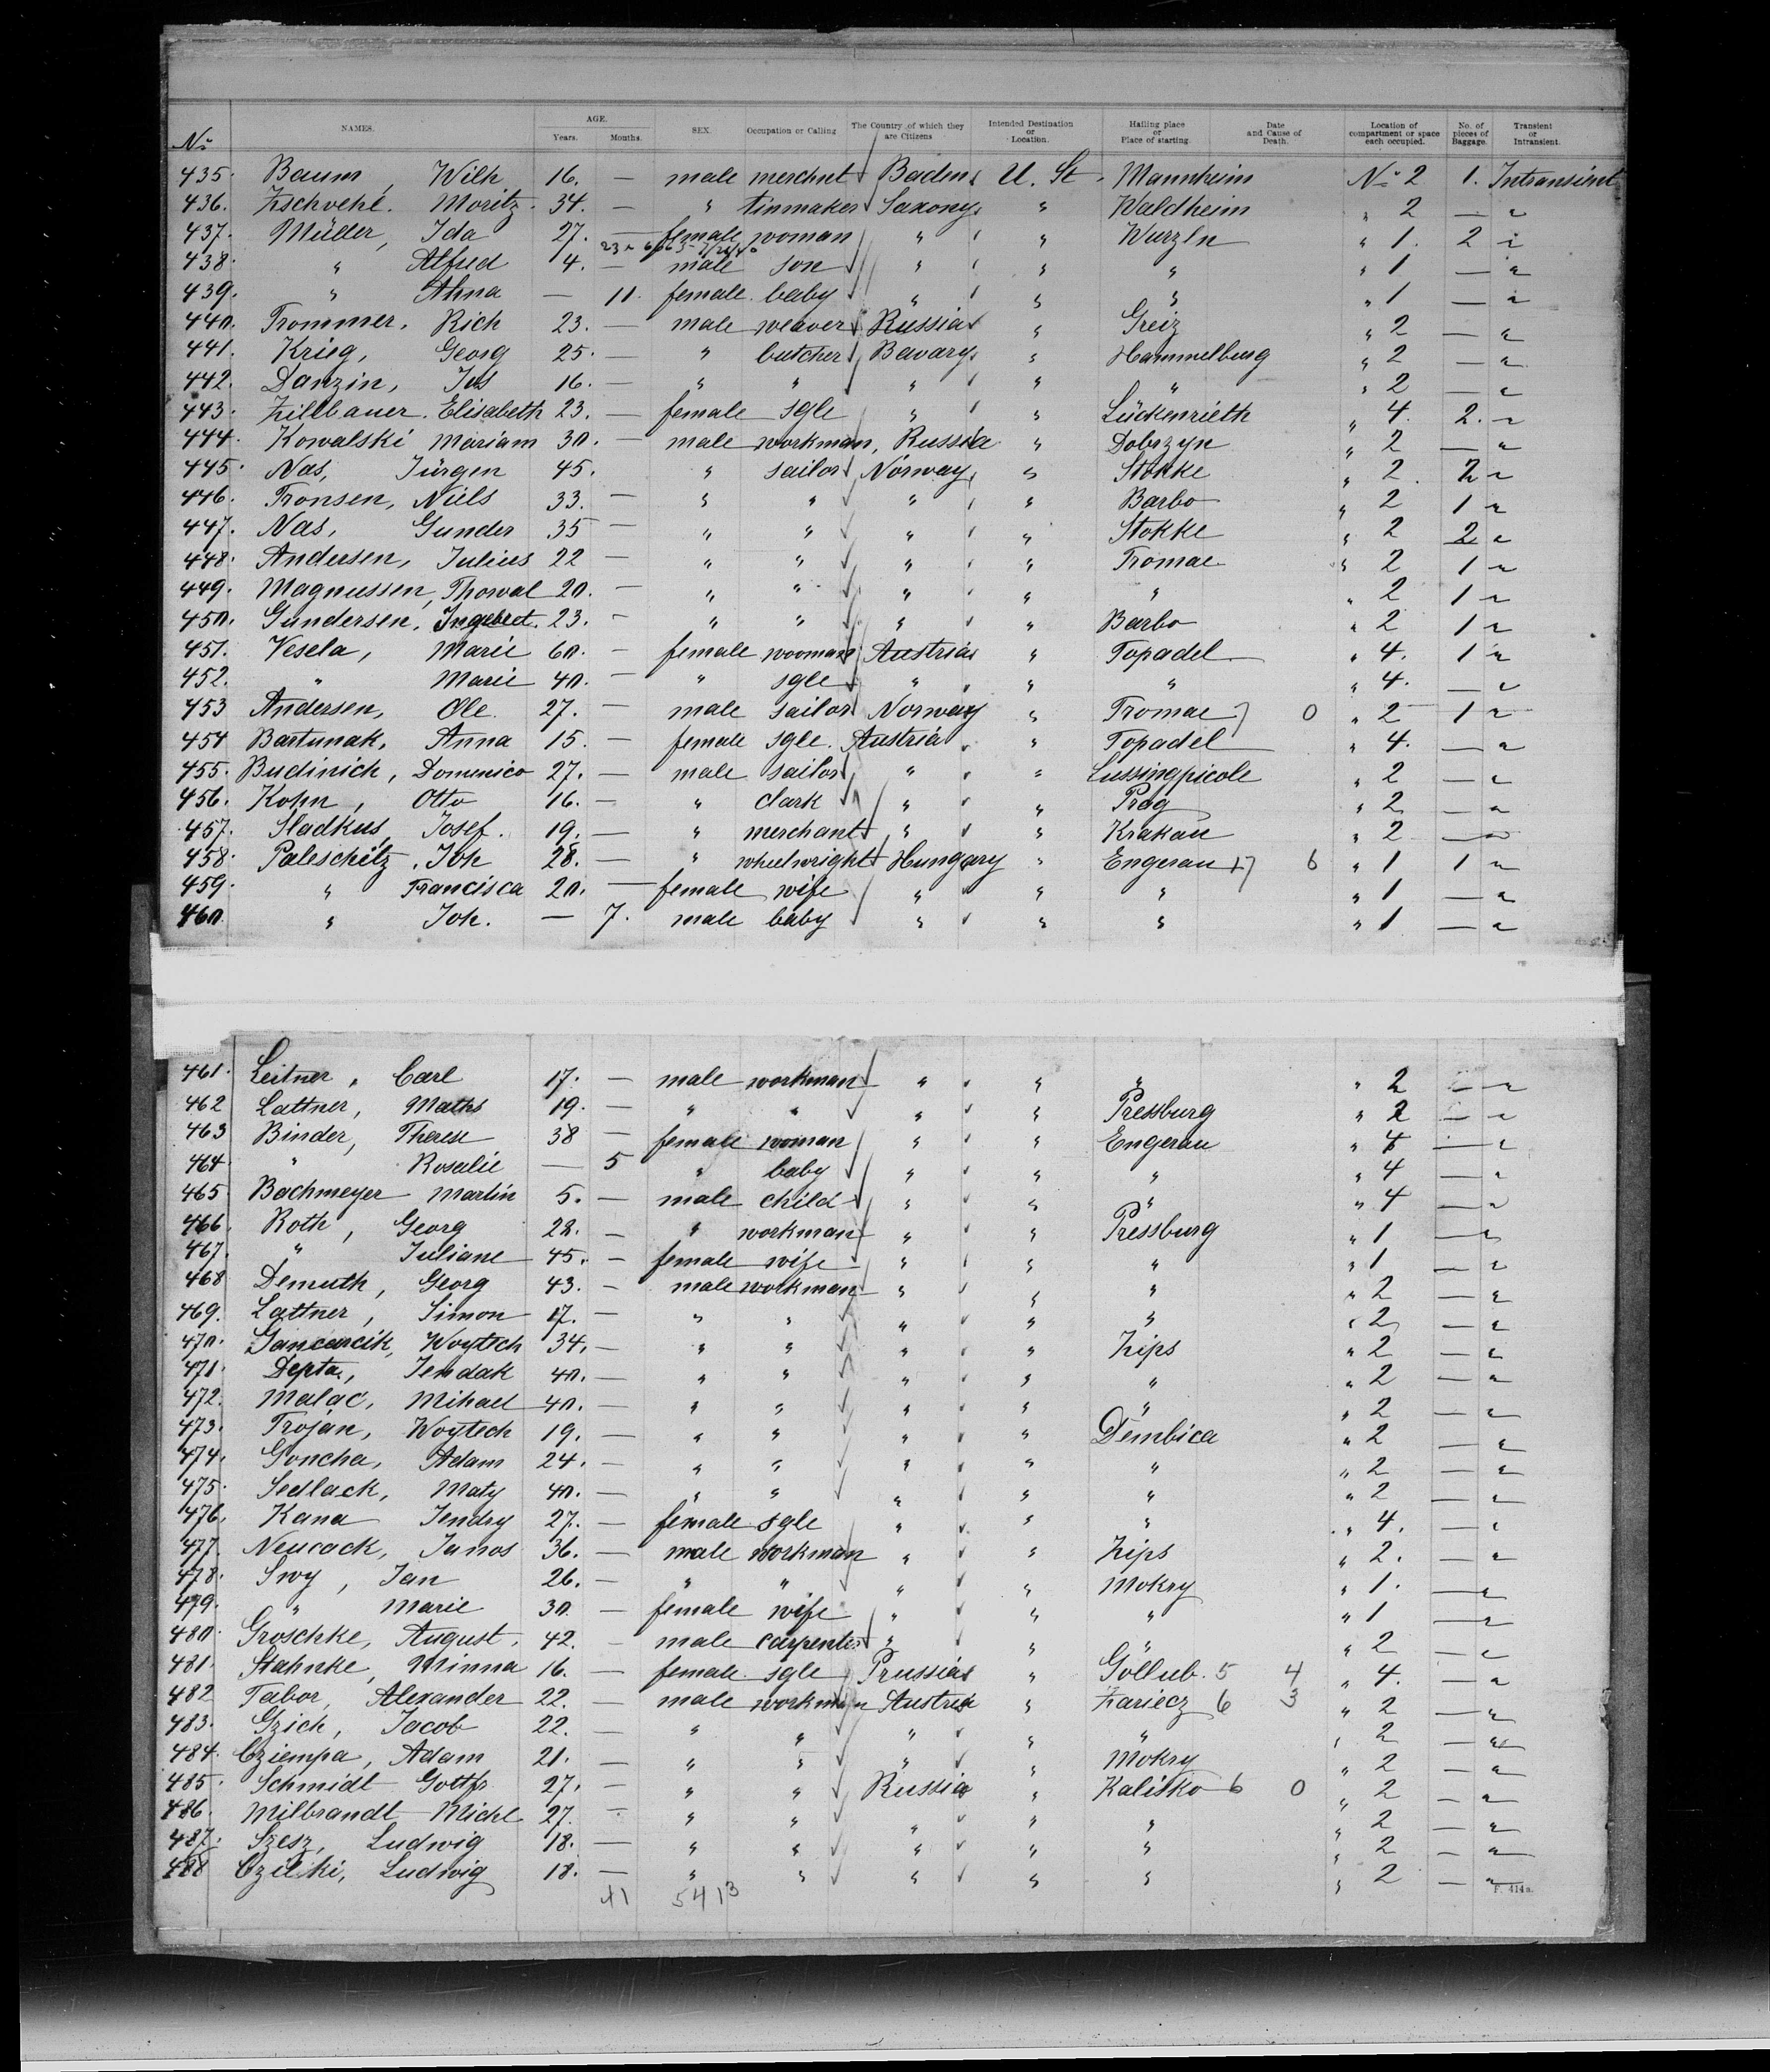 No NAMES. AGE. Years. Months. SEX. Occupation or Calling The Country of which they are Citizens Intended Destination or Location. Hailing place or Place of starting. Date and Cause of Death. Location of compartment or space each occupied. No. of pieces of Baggage. Transient or Intransient.
435. Baum, Wilh 16. — male merchnt Baden U. St. Mannheim No 2 1. Intransient
436. Zschvehe. Moritz. 34. — " tinmaker Saxony " Waldheim " 2 — "
437. Müller, Ida 27. — female woman " " Wurzln " 1. 2 "
438. " Alfred 4. — male son " " " " 1 — "
439. " Anna — 11. female baby " " " " 1 — "
440. Trommer, Rich 23. — male weaver Russia " Greiz " 2 — "
441. Krieg, Georg 25. — " butcher Bavary " Hammelburg " 2 — "
442. Danzin, Jos 16. — " " " " " " 2 — "
443. Zillbauer. Elisabeth 23. — female sgle " " Lückenrieth " 4. 2. "
444. Kowalski Mariam 30. — male workman, Russia " Dobrzyn " 2 — "
445. Nas, Jürgen 45. " sailor Norway " Stokke " 2. 2 "
446. Tronsen, Niels 33. — " " " " Barbo " 2 1 "
447. Nas, Gunder 35 — " " " " Stokke " 2 2 "
448. Andersen, Julius 22 — " " " " Tromae " 2 1 "
449. Magnussen, Thorval 20. — " " " " " " 2 1 "
450. Gundersen, Ingebret. 23. — " " " " Barbo " 2 1 "
451. Vesela, Marie 60. — female wooman Austria " Topadel " 4. 1 "
452. " Marie 40. — " sgle " " " " 4. — "
453 Andersen, Ole 27. — male sailor Norway " Tromae 7 0 " 2 1 "
454 Bartunak, Anna 15. — female sgle. Austria " Topadel " 4. — "
455. Budinich, Domenico 27. — male sailor " " Lussingpicole " 2 — "
456. Kohn, Otto 16. — " clark " " Prag " 2 — "
457. Sladkus, Josef. 19. — " merchant " " Krakau " 2 — "
458. Paleschitz, Joh 28. — " wheelwright Hungary " Engerau 17 6 " 1 1 "
459. " Francisca 20. — female wife " " " " 1 — "
460. " Joh. — 7. male baby " " " " 1 — "
461. Leitner, Carl 17. — male workman " " " " 2 — "
462 Lattner, Maths 19. — " " " " Pressburg " 2 — "
463 Binder, Therese 38 — female woman " " Engerau " 4 — "
464. " Rosalie — 5 " baby " " " " 4 — "
465. Bachmeyer Martin 5. — male child " " " " 4 — "
466. Roth, Georg 28. — " workman " " Pressburg " 1 — "
467. " Juliane 45. — female wife " " " " 1 — "
468 Demuth, Georg 43. — male workman " " " " 2 — "
469. Lattner, Simon 17. — " " " " " " 2 — "
470. Gancarcik, Woytech 34. — " " " " Zips " 2 — "
471. Depta, Jendak 40. — " " " " " " 2 — "
472. Malac, Mihael 40. — " " " " " " 2 — "
473. Trojan, Woytech 19. — " " " " Dembica " 2 — "
474. Goncha, Adam 24. — " " " " " " 2 — "
475. Sedlack, Maty 40. — " " " " " " 2 — "
476. Kana Jendry 27. — female sgle " " " " 4. — "
477. Neucack, Janos 36. — male workman " " Zips " 2. — "
478. Swy, Jan 26. — " " " " Mokry " 1. — "
479. " Marie 30 — female wife " " " " 1 — "
480. Groschke, August. 42. — male carpenter " " " " 2 — "
481. Stahnke, Minna 16. — female sgle Prussia " Gollub. 5 4 " 4. — "
482 Tabor, Alexander 22. — male workman Austria " Zariecz 6 3 " 2 — "
483. Gzich, Jacob 22. — " " " " " " 2 — "
484. Cziempa, Adam 21. — " " " " Mokry " 2 — "
485. Schmidt Gottfr. 27. — " " Russia " Kalisko 6 0 " 2 — "
486. Milbrandt Michl 27. — " " " " " " 2 — "
487. Szesz, Ludwig 18. — " " " " " " 2 — "
488 Czilski, Ludwig 18. — " " " " " " 2 — "
11 54 13
F. 414a.